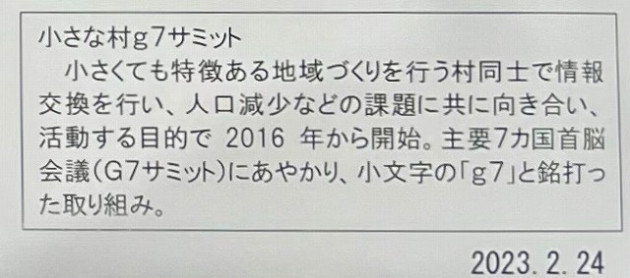 小さな村g7サミット
小さくても特徴ある地域づくりを行う村同士で情報
交換を行い、人口減少などの課題に共に向き合い、
活動する目的で 2016 年から開始。主要7カ国首脳
会議(G7サミット)にあやかり、小文字の「g7」と銘打っ
た取り組み。
2023.2.24